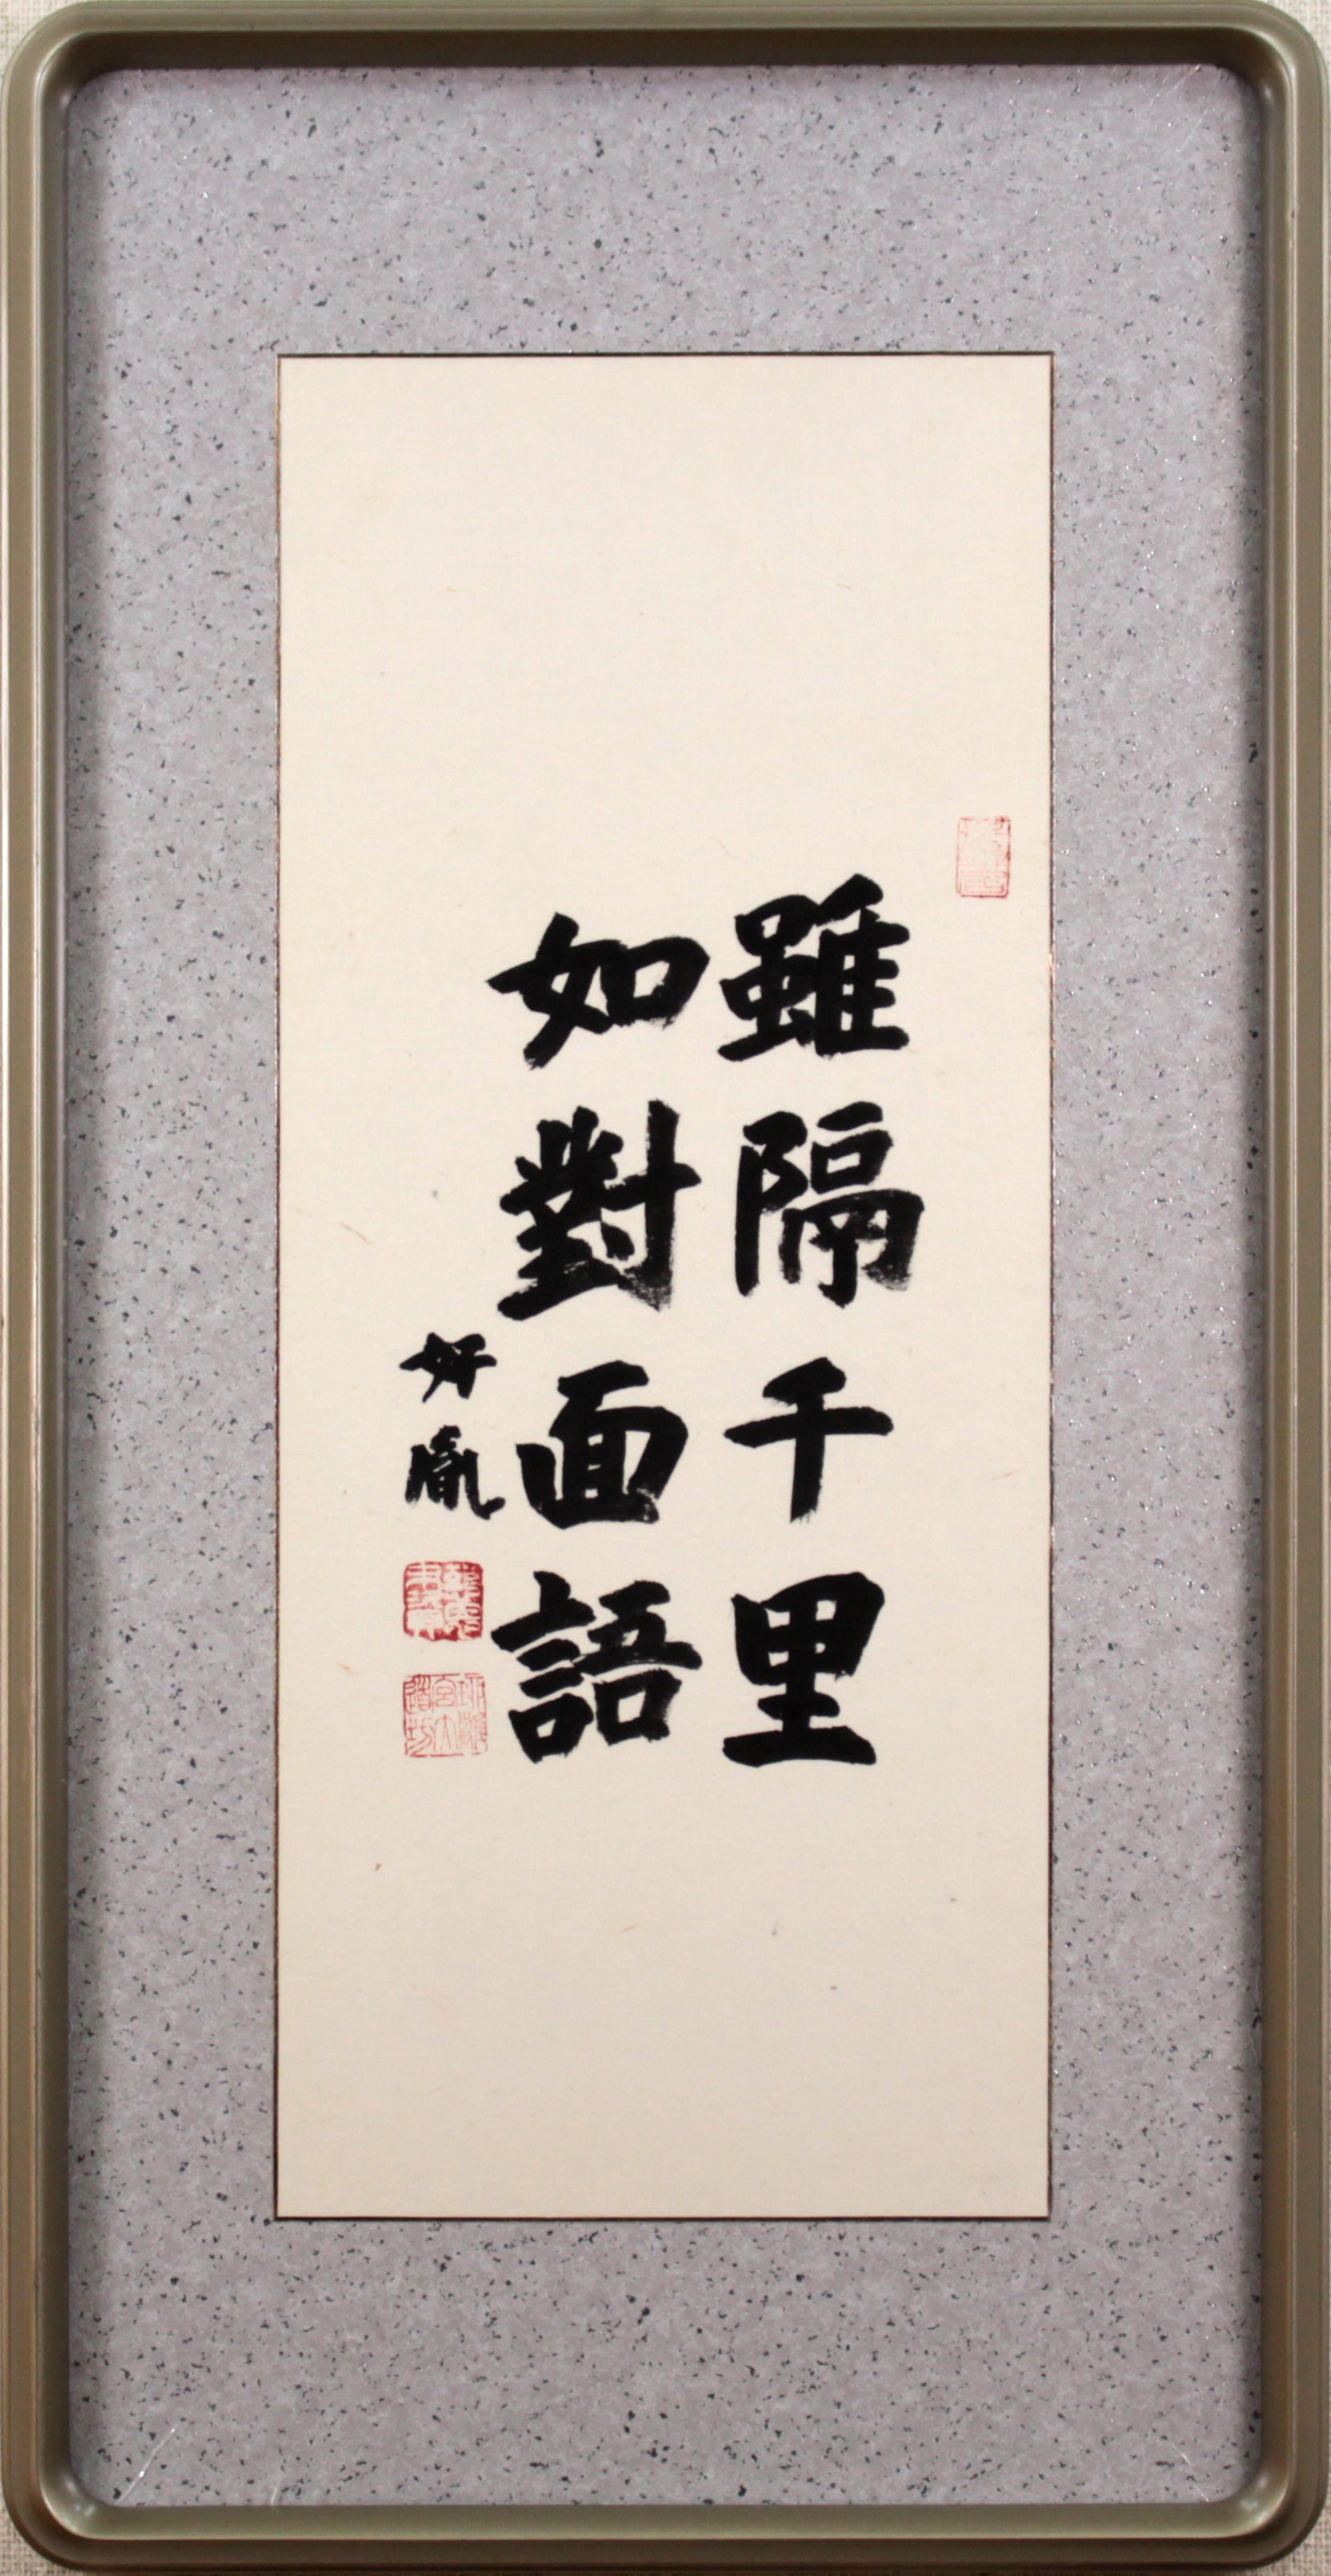 雖隔千里
如對面語
好胤